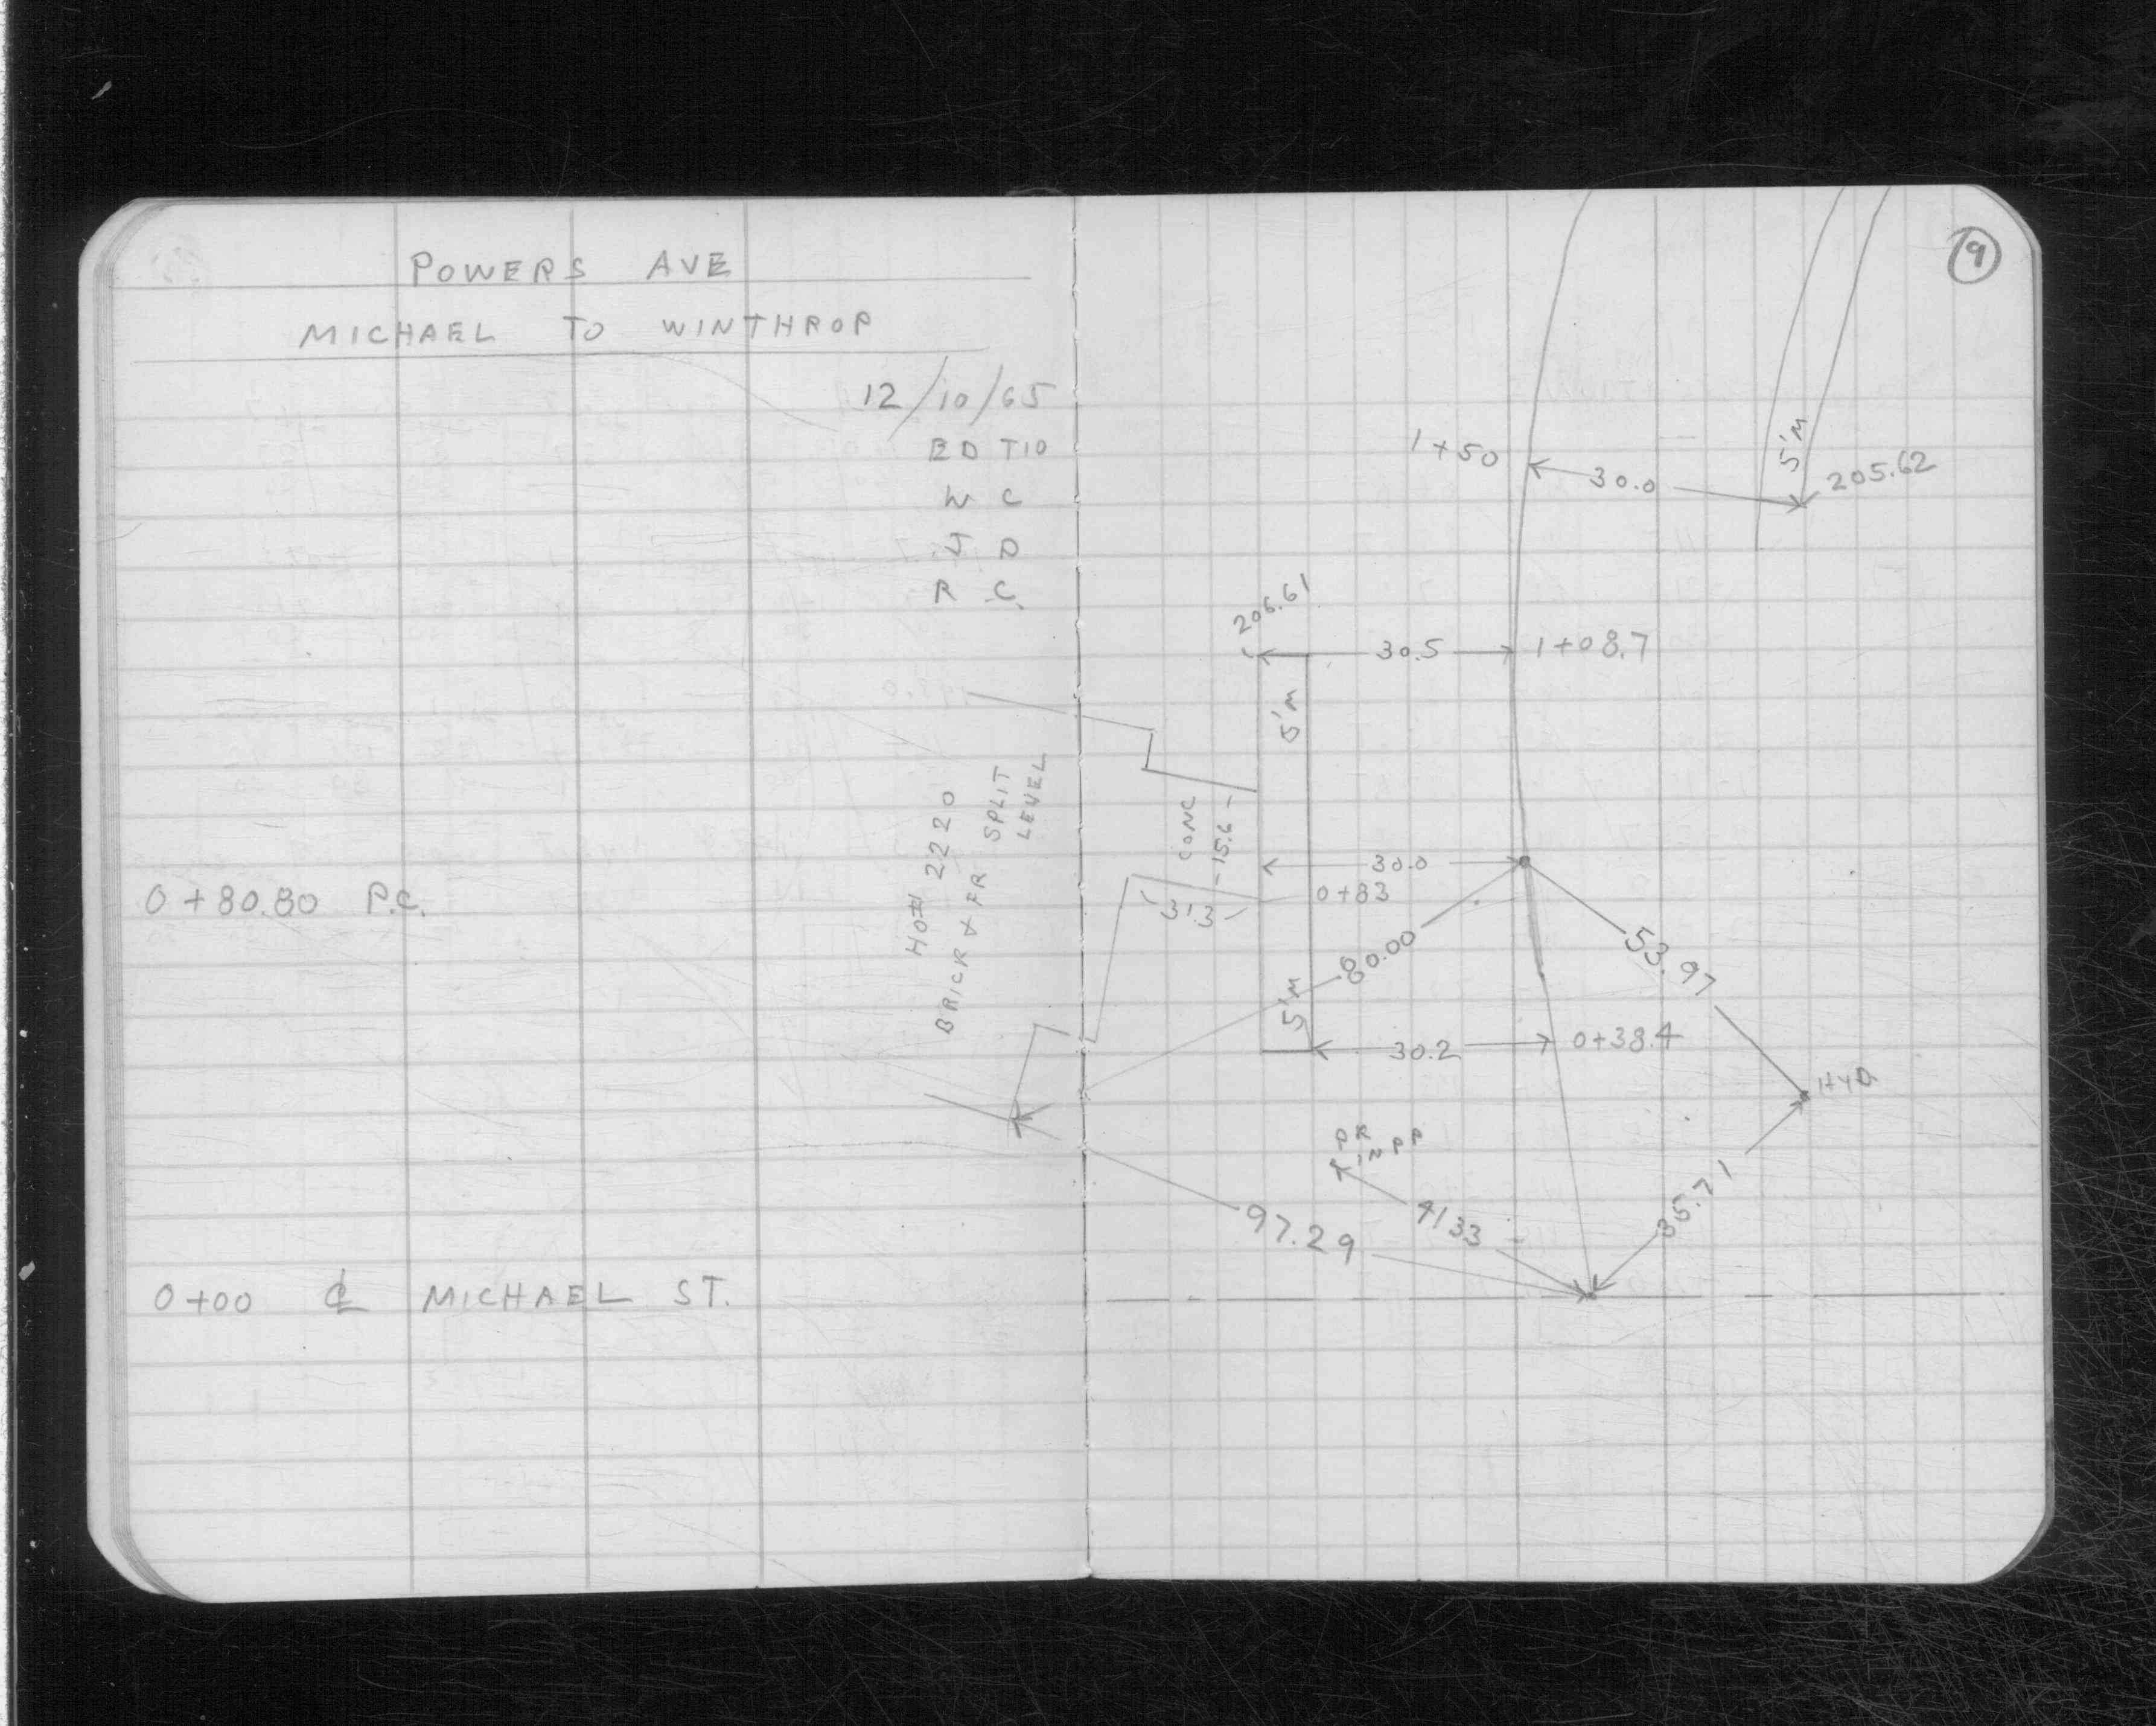 POWERS AVE
MICHAEL TO WINTHROP
12/10/65
ED T10
W C
J D
R C.
HO# 2220
BRICK & FR SPLIT
LEVEL
0+80.80 P.C.
0+00 ℄ MICHAEL ST.
9
1+50
30.0
5'M
205.62
206.61
30.5
1+08.7
5'M
CONC
15.6
30.0
0+83
31.3
80.00
53.97
5'M
30.2
0+38.4
HYD
IN PP
41.33
97.29
35.71